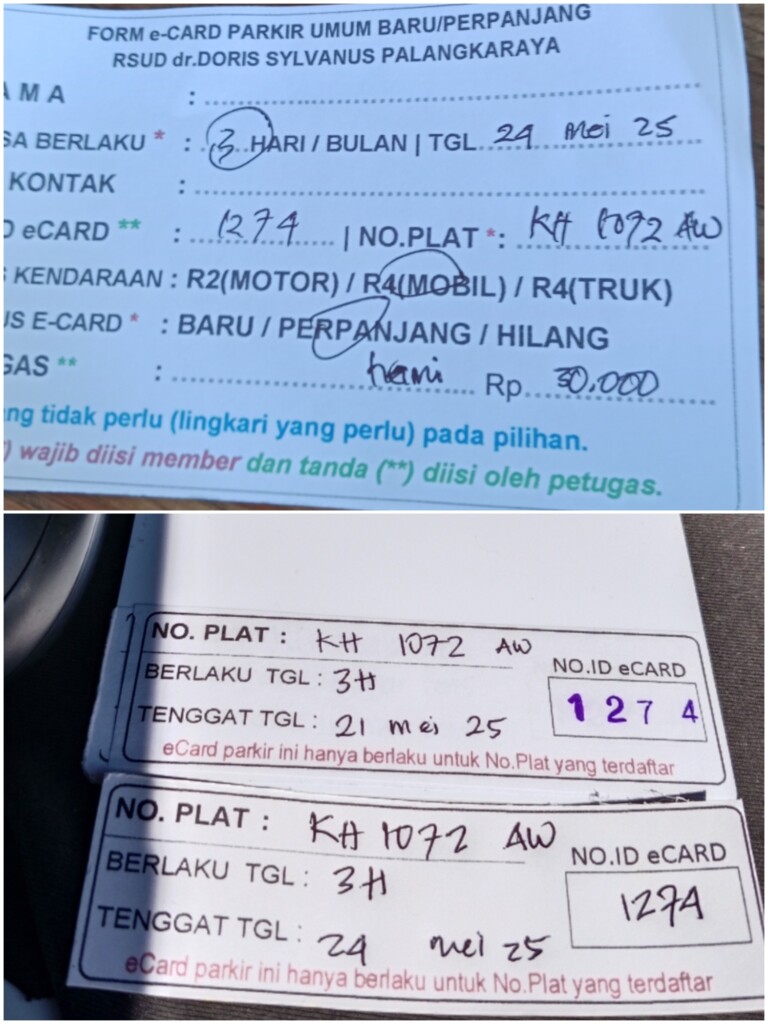 FORM e-CARD PARKIR UMUM BARU/PERPANJANG
RSUD dr.DORIS SYLVANUS PALANGKARAYA
AMA :
SA BERLAKU * : 3 HARI / BULAN | TGL 24 Mei 25
KONTAK :
D eCARD ** : 1274 | NO.PLAT *: KH 1072 AW
KENDARAAN : R2(MOTOR) / R4(MOBIL) / R4(TRUK)
US E-CARD * : BARU / PERPANJANG / HILANG
GAS ** : hani Rp 30.000
ng tidak perlu (lingkari yang perlu) pada pilihan.
) wajib diisi member dan tanda (**) diisi oleh petugas.
NO. PLAT : KH 1072 AW
BERLAKU TGL : 3H
NO.ID eCARD
1274
TENGGAT TGL : 21 mei 25
eCard parkir ini hanya berlaku untuk No.Plat yang terdaftar
NO. PLAT : KH 1072 AW
BERLAKU TGL : 3H
NO.ID eCARD
1274
TENGGAT TGL : 24 mei 25
eCard parkir ini hanya berlaku untuk No.Plat yang terdaftar